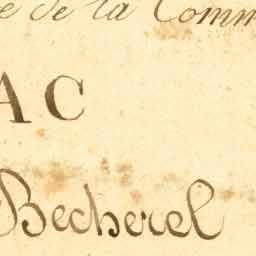 e de la Comm
AC
Becherel